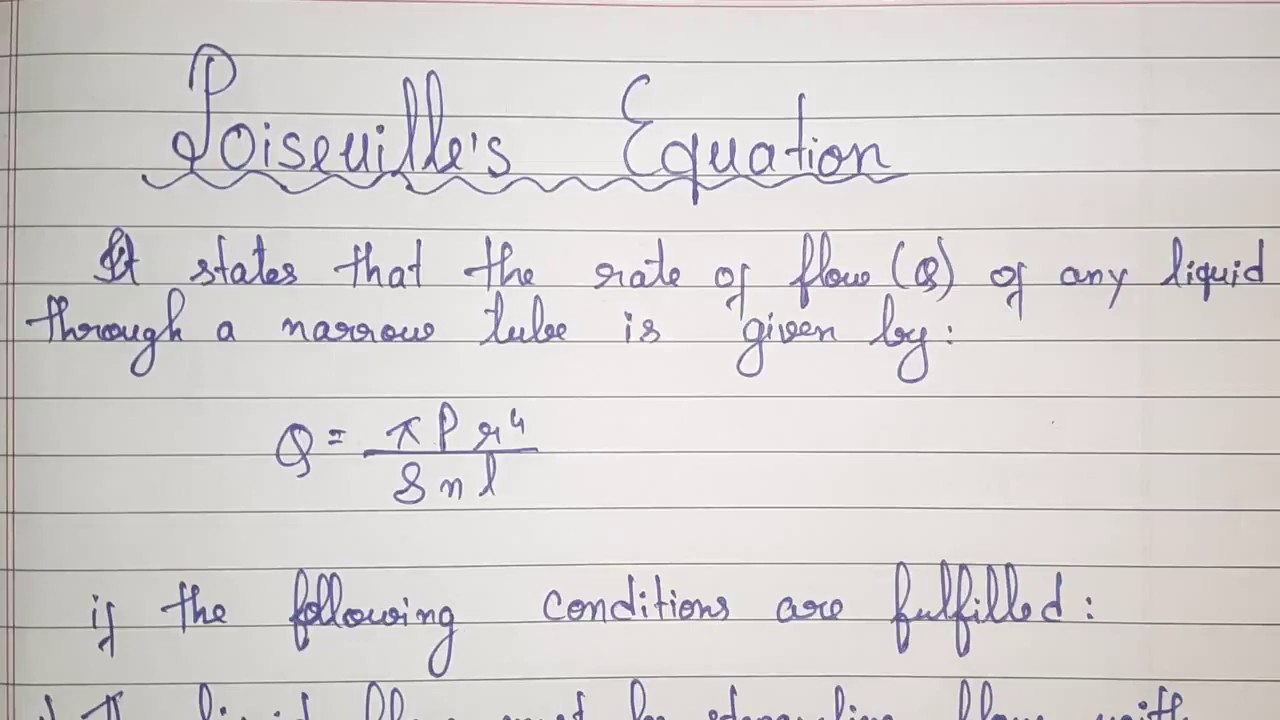 Poiseuille's Equation
It states that the rate of flow (Q) of any liquid
through a narrow tube is given by:
Q = πPr⁴
8nl
if the following conditions are fulfilled: